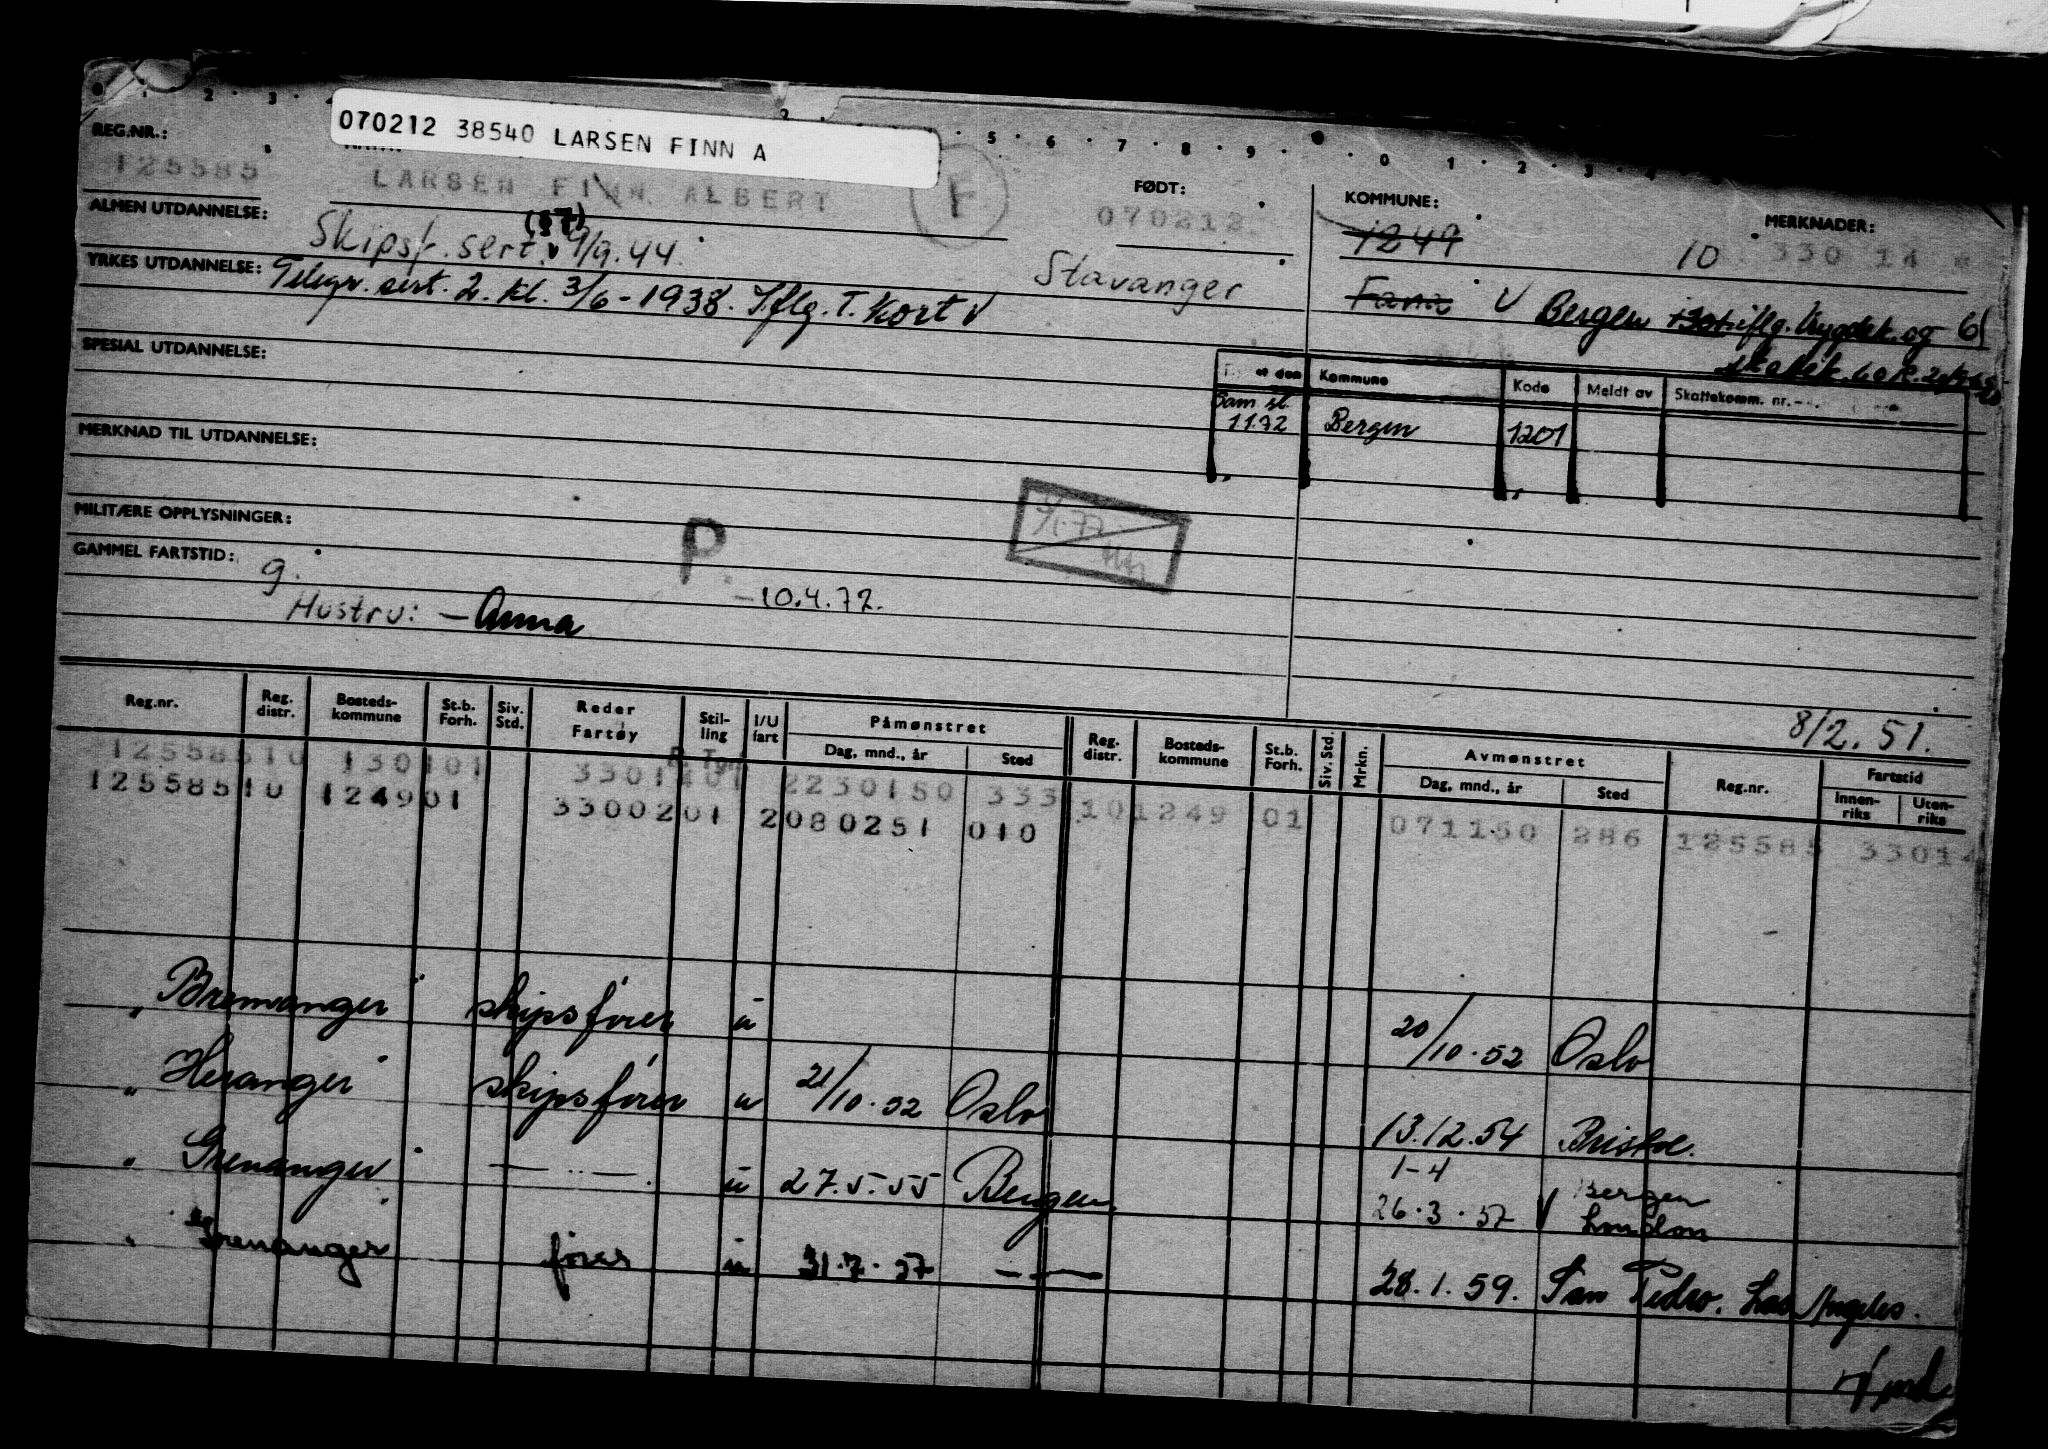 070212 38540 LARSEN FINN A
REG.NR.:
125585
LARSEN FINN ALBERT
F
FØDT:
070212
KOMMUNE:
1249
10
MERKNADER:
330 14
ALMEN UTDANNELSE:
Skipsf. sert. 9/9.44
(57)
Stavanger
Fana
V Bergen 1301 iflg. trygdek. og
YRKES UTDANNELSE:
Telegr. sert. 2. kl. 3/6-1938. Iflg. T. kort V
SPESIAL UTDANNELSE:
Kommune
Kode
Meldt av
Skattekomm. nr.
Sam. st.
11.72
Bergen
1201
MERKNAD TIL UTDANNELSE:
MILITÆRE OPPLYSNINGER:
P.
GAMMEL FARTSTID:
g.
-10.4.72.
Hustru: - Anna
8/2.51.
Reg.nr.
Reg. distr.
Bosteds-kommune
St.b. Forh.
Siv. Std.
Reder
Fartøy
Stil-ling
I/U fart
Påmønstret
Dag, mnd., år
Sted
Reg. distr.
Bosteds-kommune
St.b. Forh.
Siv. Std.
Mrkn.
Avmønstret
Dag, mnd., år
Sted
Reg.nr.
Fartstid
Innen-riks
Uten-riks
12558510 130101 3301401 2230150 333 101249 01 071150 286 125585 33014
12558510 124901 3300201 2080251 010
" Bremanger " skipsfører u 20/10.52 Oslo
" Heranger " skipsfører u 21/10.52 Oslo 13.12.54
" Grenanger " — " — u 27.5.55 Bergen 26.3.57 V London
1-4 Bergen
" Grenanger " fører u 31.7.57 — — 28.1.59. San Pedro. Los Angeles.